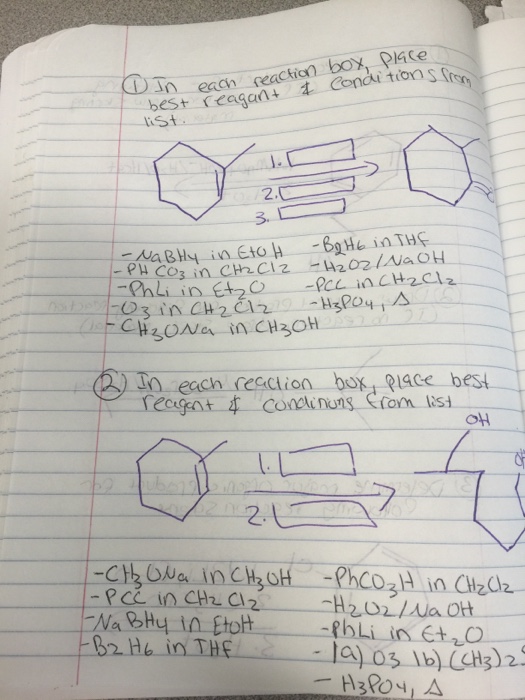 ① In each reaction box, place
best reagant & conditions from
list.
1.
2.
3.
- NaBH4 in EtOH - B2H6 in THF
- PH CO3 in CH2Cl2 - H2O2/NaOH
- PhLi in Et2O - PCC in CH2Cl2
- O3 in CH2Cl2 - H3PO4, Δ
- CH3ONa in CH3OH
② In each reaction box, place best
reagent & conditions from list
OH
1.
2.
- CH3ONa in CH3OH - PhCO3H in CH2Cl2
- PCC in CH2Cl2 - H2O2/NaOH
- NaBH4 in EtOH - PhLi in Et2O
- B2H6 in THF - 1a) O3 1b) (CH3)2S
- H3PO4, Δ